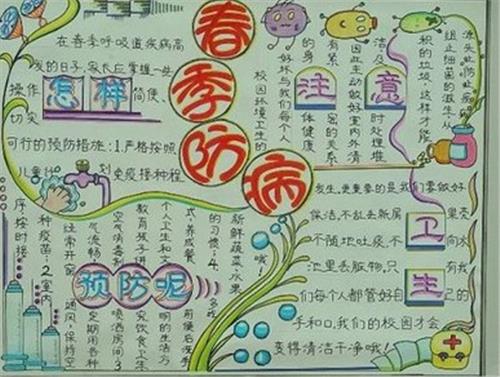 春季防病
在春季呼吸道疾病高
发的日子,家长应掌握一些
操作怎样简便、
切实
可行的预防措施:1.严格按照
儿童计免疫接种程
序,按时接
种疫苗;2.室内
经常开窗通风,保持空
气流畅定期用各种
空气消毒喷洒房间;3.
教育孩子讲究饮食卫生
个人卫生和文明的生活方
式,养成餐前便后洗手
的习惯;4.多吃
新鲜蔬菜水果
哦!
预防呢
注意
校园环境卫生的
好坏与我们每个人
的身体健康
有紧密的关系
因此主动做好室内外清
洁及时处理堆
积的垃圾,这样才能
阻止细菌的滋生,从
源头防止疾病
发生,更重要的是我们要做好
保洁,不乱丢纸屑果壳
不随地吐痰,不向水
池里丢脏物,只有我
们每个人都管好自己的
手和口,我们的校园才会
变得清洁干净哦!
卫生